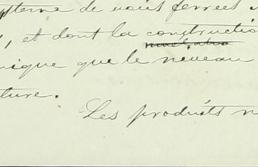 de voies ferrées
, et dont la constructio
nique que le niveau
ture.
Les produits n